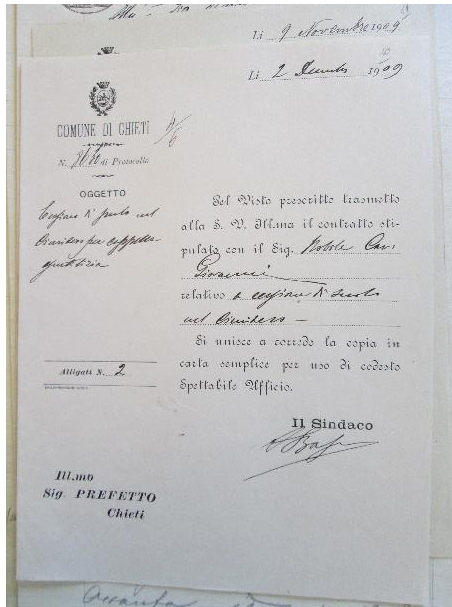 Li 9 Novembre 1909
Li 2 Decembre 1909
COMUNE DI CHIETI
N. di Protocollo
OGGETTO
Cessione di suolo nel
Cimitero per cappella
gentilizia
Pel Visto prescritto trasmetto
alla S. V. Ill.ma il contratto sti-
pulato con il Sig. Nobile Cav.
Giovanni
relativo a cessione di suolo
nel Cimitero
Si unisce a corredo la copia in
carta semplice per uso di codesto
Spettabile Ufficio.
Alligati N. 2
Il Sindaco
Ill.mo
Sig. PREFETTO
Chieti